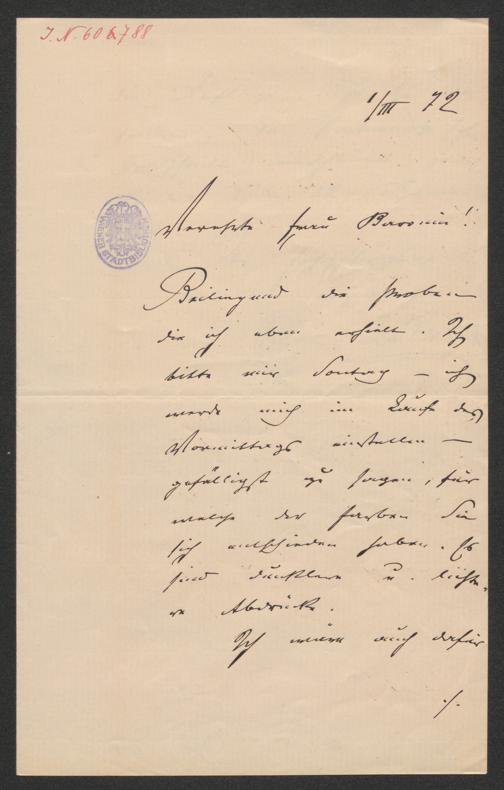 I. N. 60788
1/III 72
WIENER STADTBIBLIOTHEK
Verehrte Frau Baronin!
Beiliegend die Proben
die ich eben erhielt. Ich
bitte mir Sontag – ich
werde mich im Laufe des
Vormittags einstellen –
gefälligst zu sagen, für
welche der Farben Sie
sich entschieden haben. Es
sind dunklere u. lichte-
re Abdrücke.
Ich wäre auch dafür
./.